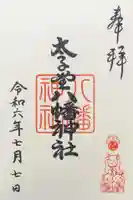 奉拝
太子堂八幡神社
八幡神社
令和六年七月七日